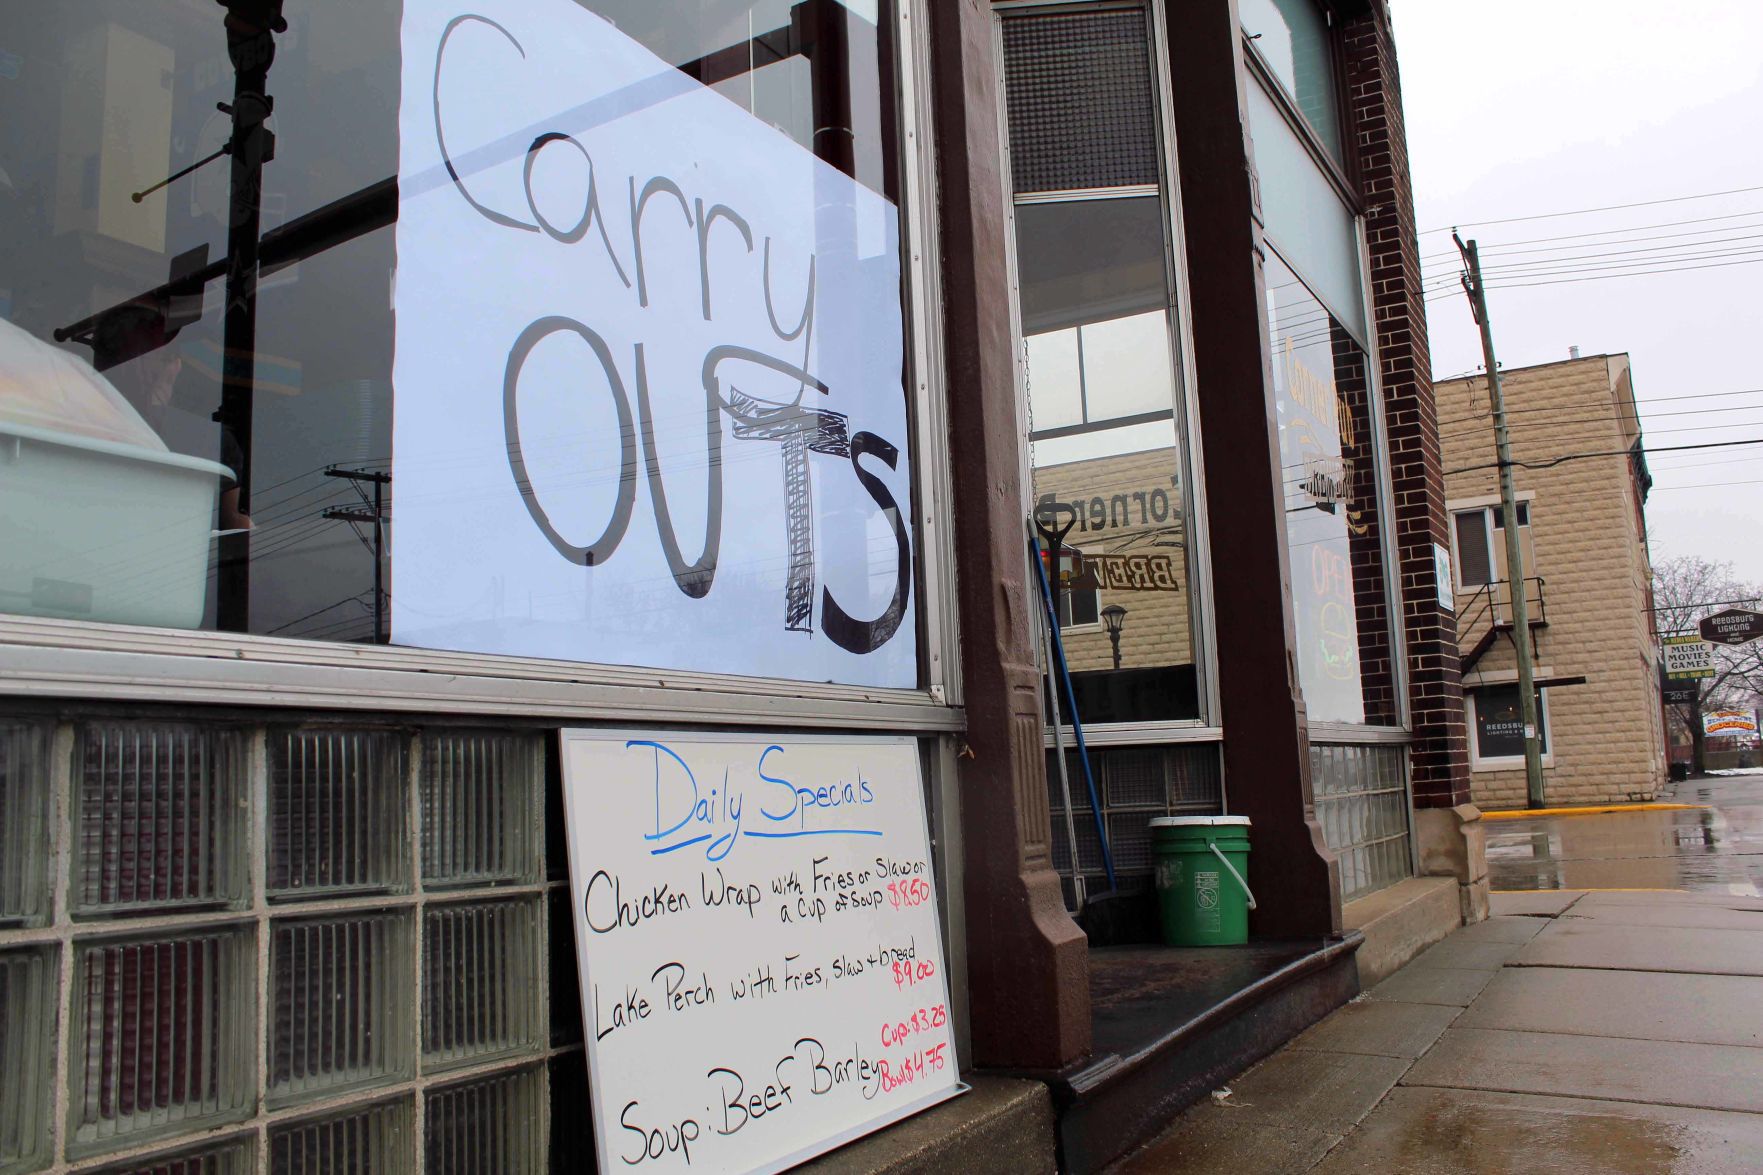 Carry
OUTS
Daily Specials
Chicken Wrap with Fries or Slaw or
a cup of soup $8.50
Lake Perch with Fries, slaw + bread
$9.00
Soup: Beef Barley Cup: $3.25
Bowl $4.75
Corner
BREW
Corner
OPEN
REEDSBURG
LIGHTING
and
HOME
MUSIC
MOVIES
GAMES
26E
REEDSBURG
GROCERIES